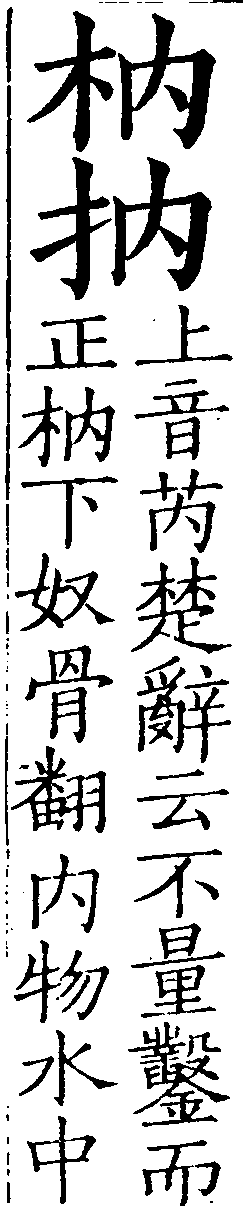 枘抐
上音芮楚辭云不量鑿而
正枘下奴骨翻内物水中